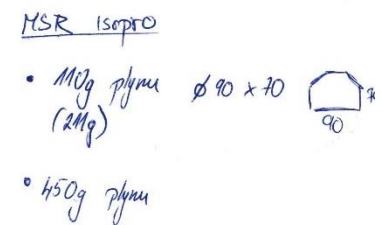 MSR Isopro
• 110g plynu ø 90 x 70
(211g)
90
• 450g plynu